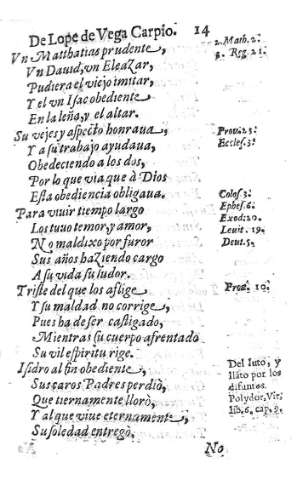 De Lope de Vega Carpio. 14
Vn Matthatias prudente,
Vn Dauid, vn Eleazar,
Pudiera el viejo imitar,
Y el vn Isac obediente
En la leña, y el altar.
Su vejes y aspecto honraua,
Y a su trabajo ayudaua,
Obedeciendo a los dos,
Por lo que via que à Dios
Esta obediencia obligaua.
Para viuir tiempo largo
Los tuuo temor, y amor,
No maldixo por furor
Sus años haziendo cargo
A su vida su sudor.
Triste del que los aflige
Y su maldad no corrige,
Pues ha de ser castigado,
Mientras su cuerpo afrentado
Su vil espiritu rige.
Isidro al fin obediente,
Sus caros Padres perdiò,
Que tiernamente llorò,
Y al que viue eternamente
Su soledad entregò,
No
2. Math. 2.
Reg. 21.
Prou. 23.
Eccles. 3.
Colos. 3.
Ephes. 6.
Exod. 20.
Leuit. 19.
Deut. 5.
Prou. 10.
Del luto, y
llãto por los
difuntos.
Polydor, Vir.
lib. 6, cap. 9.